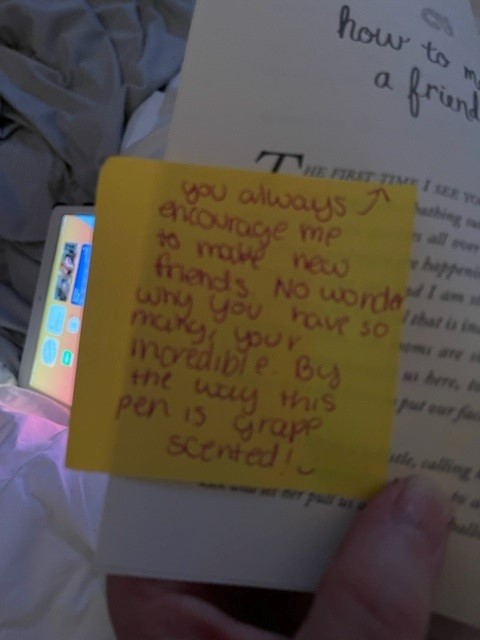 how to
a friend
THE FIRST TIME I SEE YOU
you always
encourage me
to make new
friends. No wonder
why you have so
many, your
incredible. By
the way this
pen is grape
scented!
all over
happeni
d I am s
that is in
oms are s
us here,
put our fa
stle, calling
her pull us